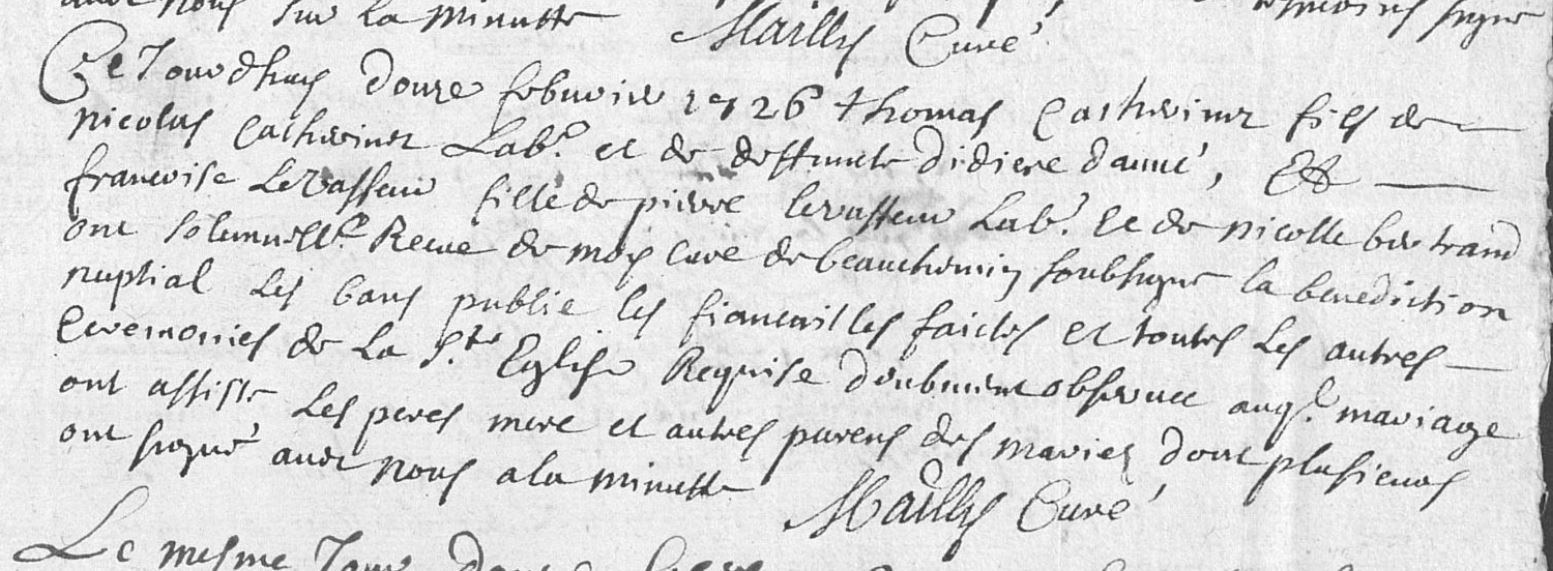 nous sur la minutte Mailly Curé
Ce Jourdhuy douze febvrier 1726 thomas Catherinet fils de
nicolas Catherinet Lab.r et de deffuncte didiere daune, Et
francoise Levasseur fille de pierre levasseur Lab.r et de nicolle bertrand
ont solemnellt. Receue de moy curé de beauchemin soubsigné la benediction
nuptial les bans publie les fiancailles faictes et toutes les autres
Ceremonies de la S.te Eglise Requise deubment observee auql. mariage
ont assiste les peres mere et autres parens des mariez dont plusieurs
ont signé avec nous a la minutte Mailly Curé
Le mesme Jour